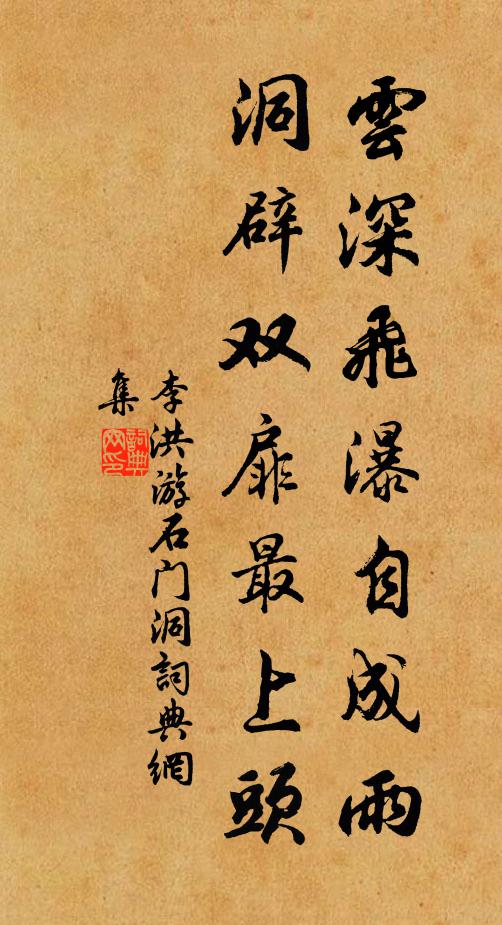 雲深飛瀑自成雨
洞辟双扉最上頭
李洪游石门洞詞典網
集
詞典
网印